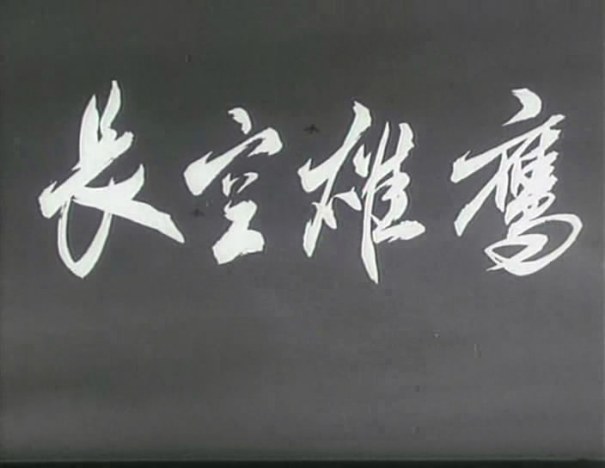 长空雄鹰